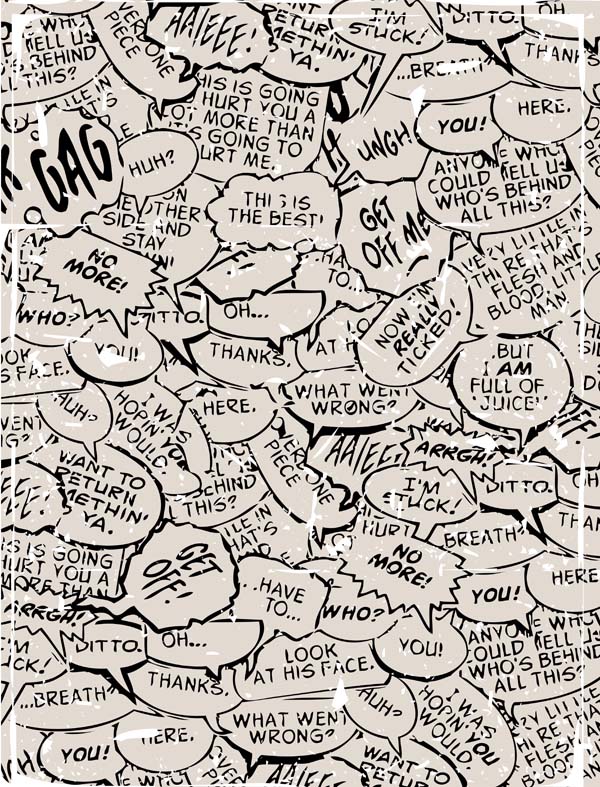 WHO'S
TELL US
BEHIND
THIS?
EVERYONE
PIECE
AAIEEE!
RETURN
METHIN'
YA.
I'M
STUCK!
DITTO.
OH
...BREATH
THANKS
THIS IS GOING
HURT YOU A
LOT MORE THAN
IT'S GOING TO
HURT ME.
UNGH!
YOU!
HERE.
GAG
HUH?
ANYONE WHO
COULD TELL US
WHO'S BEHIND
ALL THIS?
OTHER
SIDE AND
STAY
THIS IS
THE BEST!
GET
OFF ME
NO
MORE!
VERY LITTLE IN
THERE THAT'S
FLESH AND
BLOOD, LITTLE
MAN
HA
TO...
WHO?
DITTO.
OH...
NOW I'M
REALLY
TICKED!
THANKS.
AT H
YOU!
...BUT
I AM
FULL OF
"JUICE"
LOOK
S FACE.
WHAT WENT
WRONG?
HUH?
I WAS
HOPIN' YOU
WOULD
HERE.
EVERYONE
PIECE
AAIEEE
ARRGH!
WANT TO
RETURN
METHIN'
YA.
BEHIND
L THIS?
I'M
STUCK!
DITTO.
OH
HURT
BREATH?
THAN
IS IS GOING
HURT YOU A
MORE THAN
GET
OFF!
NO
MORE!
...HAVE
TO...
WHO?
YOU!
HERE
ARRGH!
I'M
UCK!
DITTO.
OH...
LOOK
AT HIS FACE.
YOU!
ANYONE WHO
COULD TELL US
WHO'S BEHIND
ALL THIS?
...BREATH?
THANKS.
WHAT WENT
WRONG?
HUH?
I WAS
HOPIN' YOU
WOULD
YOU!
HERE.
WANT TO
RETURN
AAIEEE